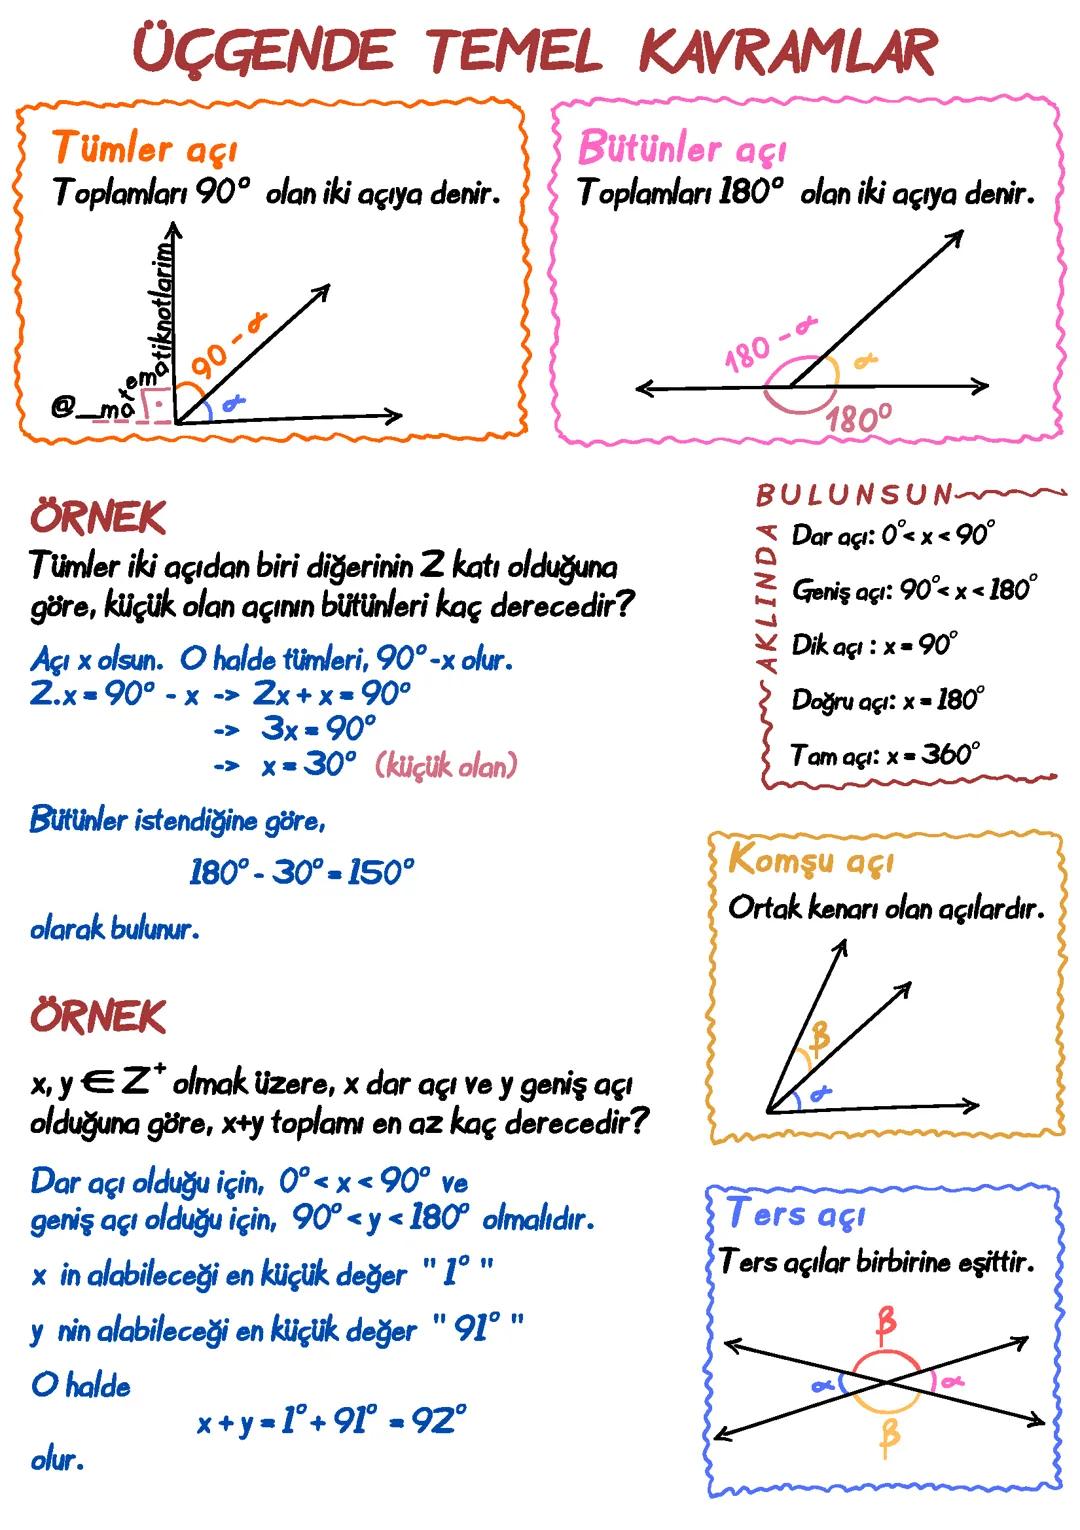 ÜÇGENDE TEMEL KAVRAMLAR
Tümler açı
Toplamları 90° olan iki açıya denir.
90 - α
α
@__matematiknotlarim
Bütünler açı
Toplamları 180° olan iki açıya denir.
180 - α
α
180°
ÖRNEK
Tümler iki açıdan biri diğerinin 2 katı olduğuna
göre, küçük olan açının bütünleri kaç derecedir?
Açı x olsun. O halde tümleri, 90°-x olur.
2.x = 90° - x -> 2x + x = 90°
-> 3x = 90°
-> x = 30° (küçük olan)
Bütünler istendiğine göre,
180° - 30° = 150°
olarak bulunur.
AKLINDA BULUNSUN
Dar açı: 0° < x < 90°
Geniş açı: 90° < x < 180°
Dik açı : x = 90°
Doğru açı: x = 180°
Tam açı: x = 360°
Komşu açı
Ortak kenarı olan açılardır.
β
α
ÖRNEK
x, y ∈ Z⁺ olmak üzere, x dar açı ve y geniş açı
olduğuna göre, x+y toplamı en az kaç derecedir?
Dar açı olduğu için, 0° < x < 90° ve
geniş açı olduğu için, 90° < y < 180° olmalıdır.
x in alabileceği en küçük değer " 1° "
y nin alabileceği en küçük değer " 91° "
O halde
x + y = 1° + 91° = 92°
olur.
Ters açı
Ters açılar birbirine eşittir.
β
α α
β